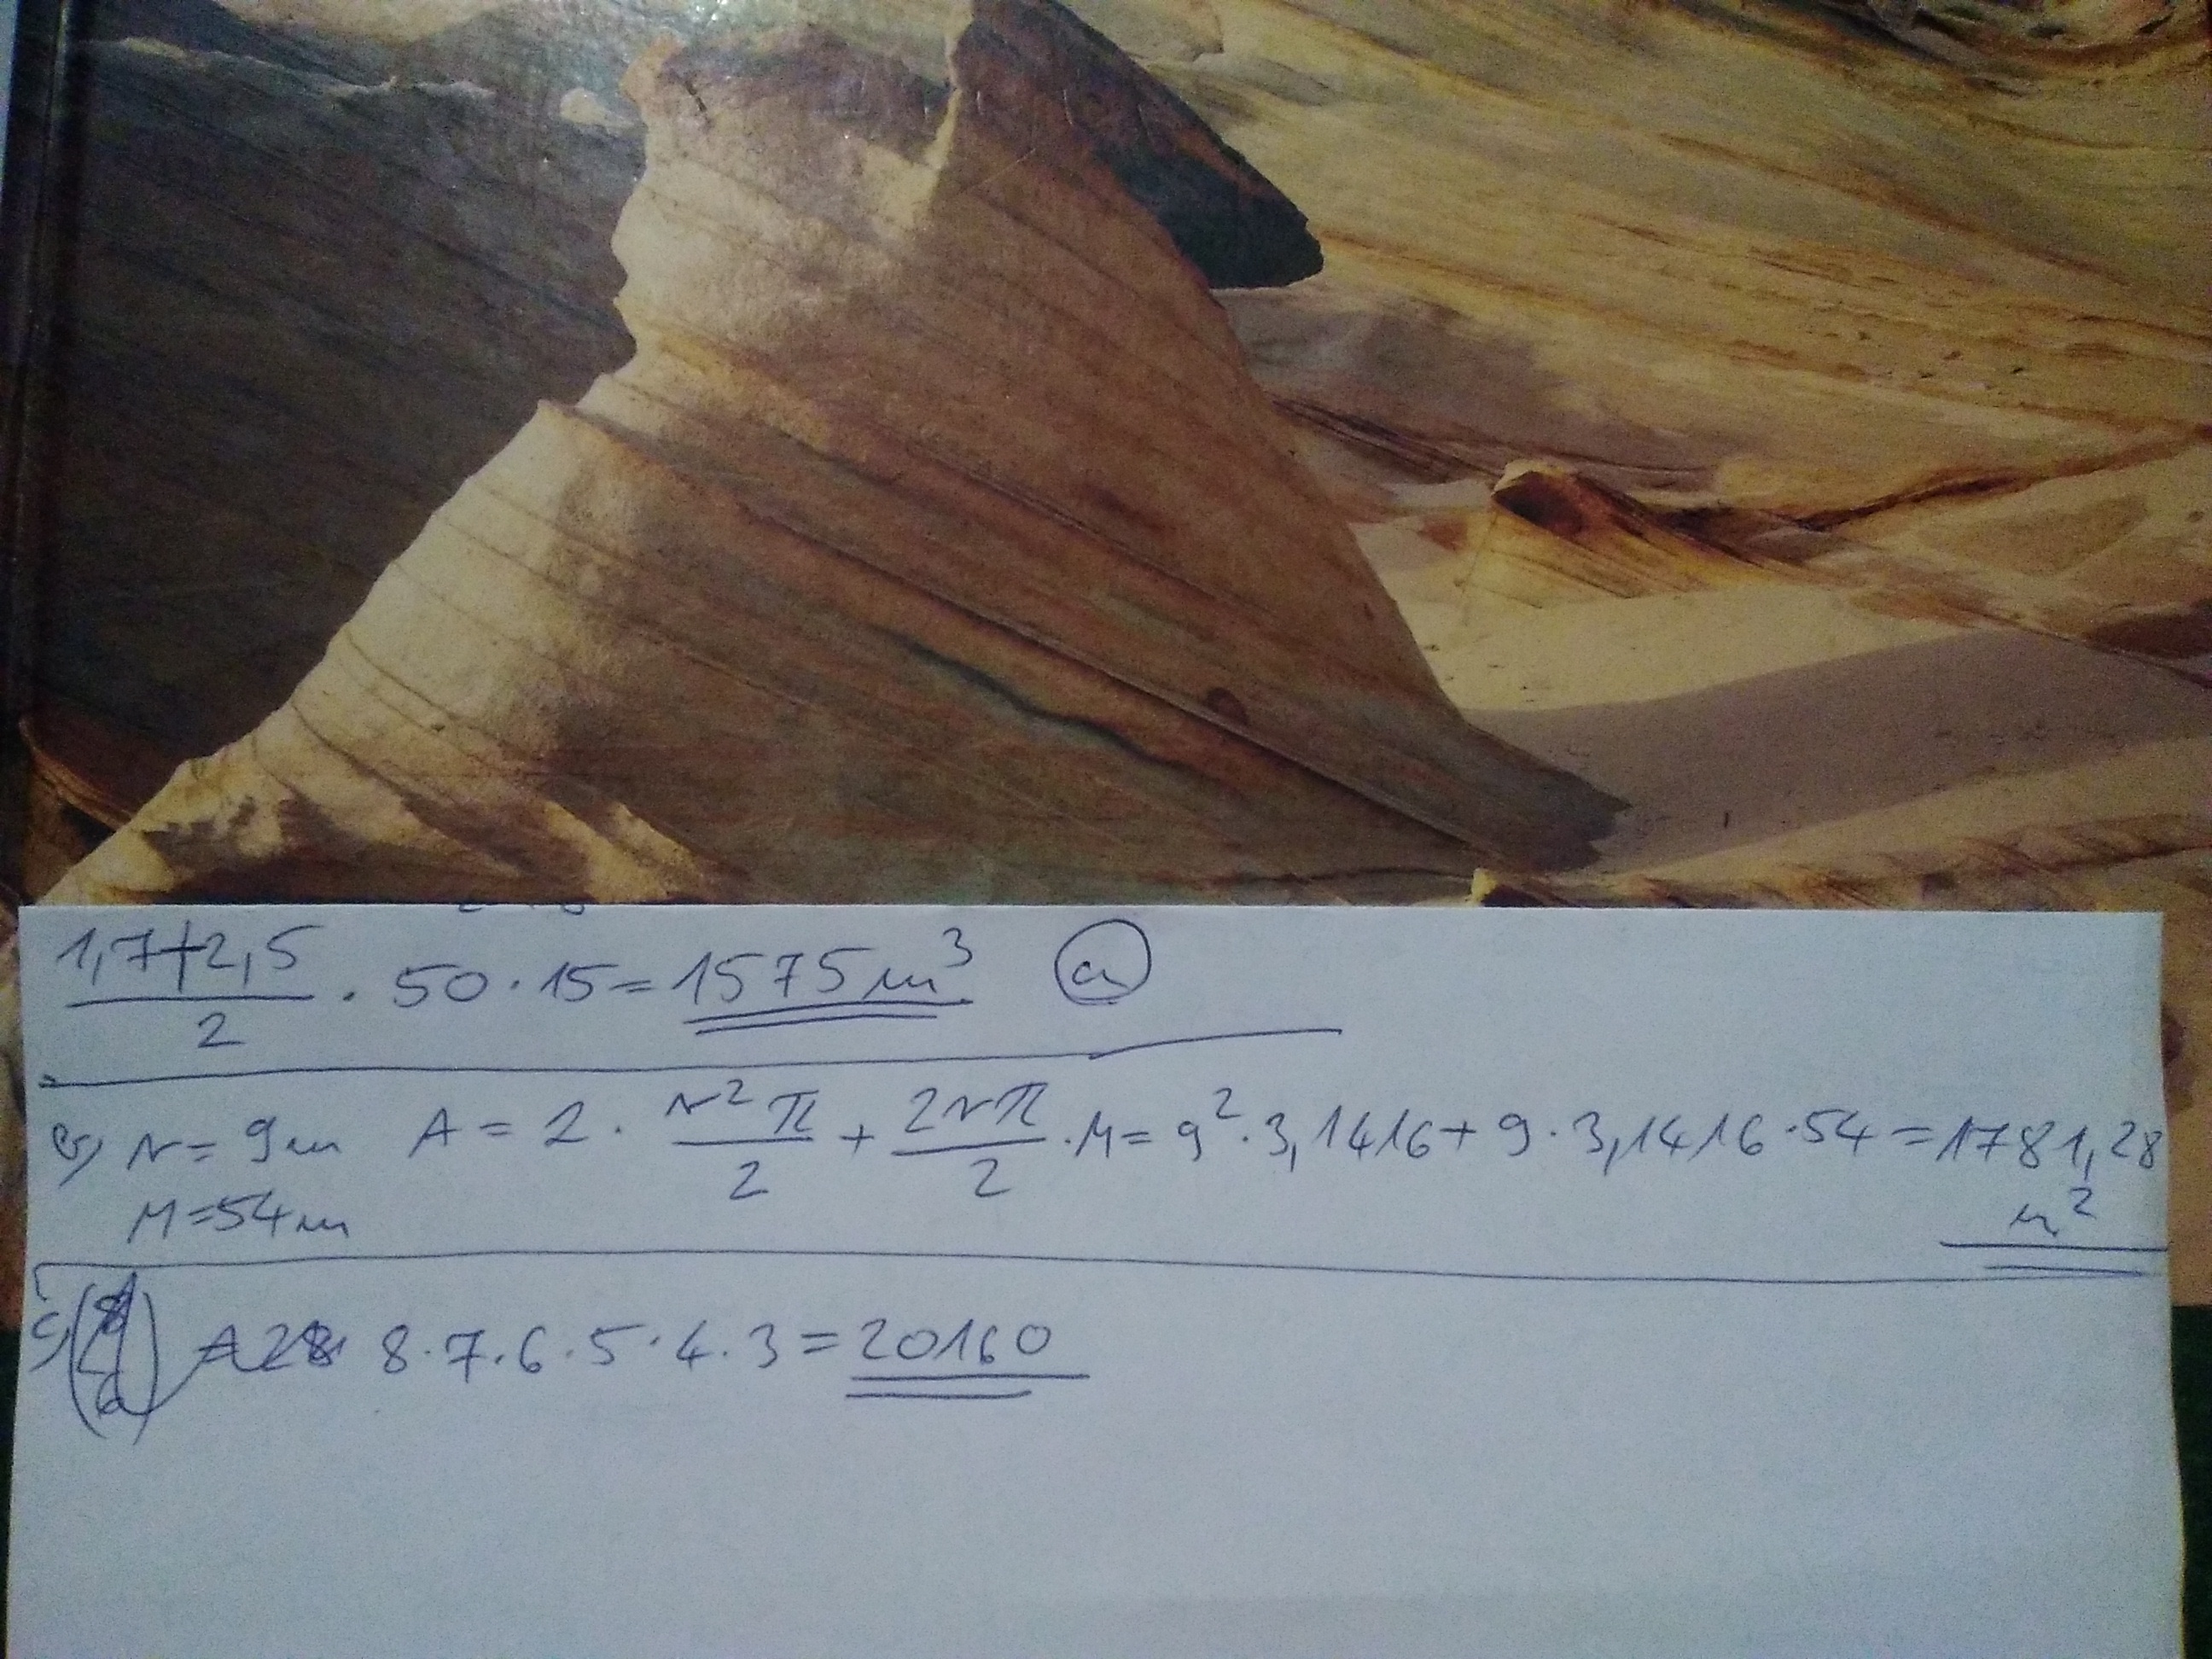 1,7+2,5
―――― · 50 · 15 = 1575 m³ ⓐ
2
b) r = 9m A = 2 · r²π/2 + 2rπ/2 · M = 9² · 3,1416 + 9 · 3,1416 · 54 = 1781,28
M = 54m m²
c) 8 · 7 · 6 · 5 · 4 · 3 = 20160